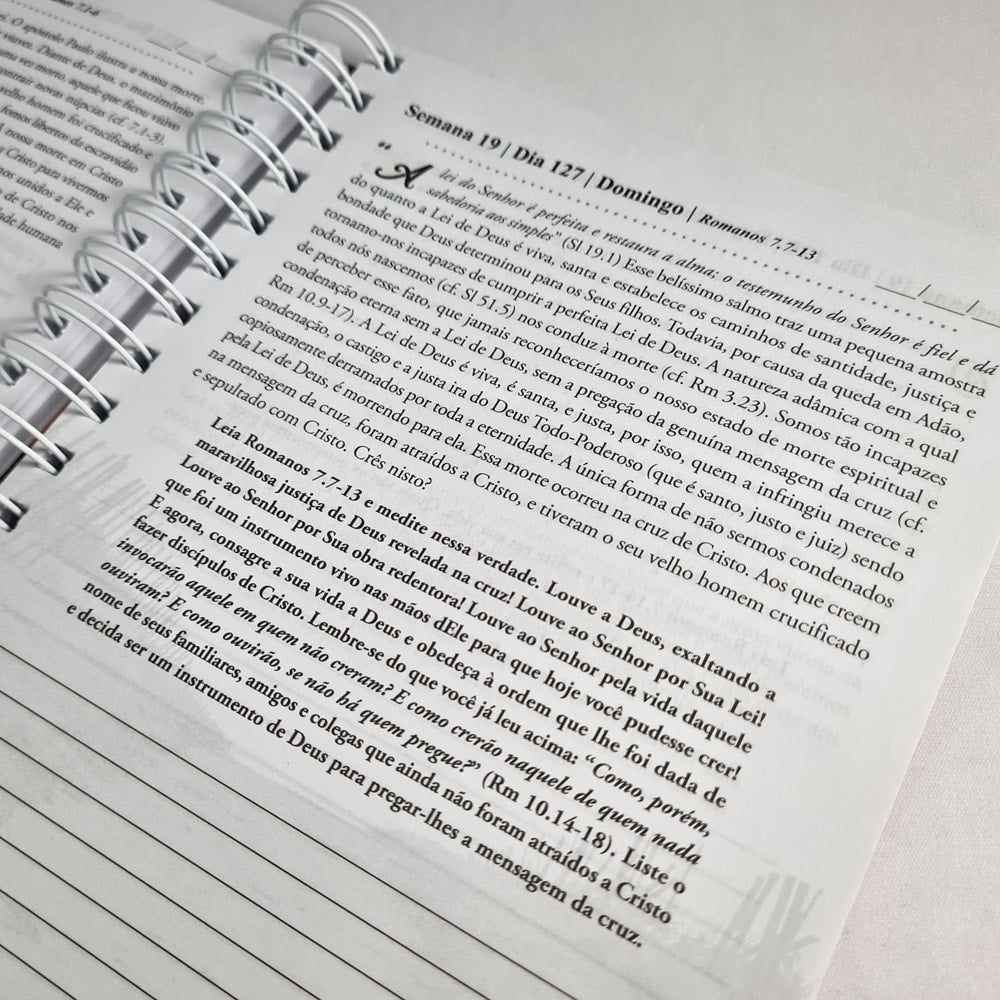 7.1-6
ei. O apóstolo Paulo ilustra a nossa morte,
viuvez. Diante de Deus, o matrimônio
uma vez morto, aquele que ficou viúvo
contrair novas núpcias (cf. 7.1-3).
velho homem foi crucificado e
fomos libertos da escravidão
A nossa morte em Cristo
a Cristo para vivermos
mos unidos a Ele e
de Cristo nos
dade humana
Semana 19 | Dia 127 | Domingo | Romanos 7.7-13
“A lei do Senhor é perfeita e restaura a alma; o testemunho do Senhor é fiel e dá
sabedoria aos simples” (Sl 19.1) Esse belíssimo salmo traz uma pequena amostra
do quanto a Lei de Deus é viva, santa e estabelece os caminhos de santidade, justiça e
bondade que Deus determinou para os Seus filhos. Todavia, por causa da queda em Adão,
tornamo-nos incapazes de cumprir a perfeita Lei de Deus. A natureza adâmica com a qual
todos nós nascemos (cf. Sl 51.5) nos conduz à morte (cf. Rm 3.23). Somos tão incapazes
de perceber esse fato, que jamais reconheceríamos o nosso estado de morte espiritual e
condenação eterna sem a Lei de Deus, sem a pregação da genuína mensagem da cruz (cf.
Rm 10.9-17). A Lei de Deus é viva, é santa, e justa, por isso, quem a infringiu merece a
condenação, o castigo e a justa ira do Deus Todo-Poderoso (que é santo, justo e juiz) sendo
copiosamente derramados por toda a eternidade. A única forma de não sermos condenados
pela Lei de Deus, é morrendo para ela. Essa morte ocorreu na cruz de Cristo. Aos que creem
na mensagem da cruz, foram atraídos a Cristo, e tiveram o seu velho homem crucificado
e sepultado com Cristo. Crês nisto?
Leia Romanos 7.7-13 e medite nessa verdade. Louve a Deus, exaltando a
maravilhosa justiça de Deus revelada na cruz! Louve ao Senhor por Sua Lei!
Louve ao Senhor por Sua obra redentora! Louve ao Senhor pela vida daquele
que foi um instrumento vivo nas mãos dEle para que hoje você pudesse crer!
E agora, consagre a sua vida a Deus e obedeça à ordem que lhe foi dada de
fazer discípulos de Cristo. Lembre-se do que você já leu acima: “Como, porém,
invocarão aquele em quem não creram? E como crerão naquele de quem nada
ouviram? E como ouvirão, se não há quem pregue?” (Rm 10.14-18). Liste o
nome de seus familiares, amigos e colegas que ainda não foram atraídos a Cristo
e decida ser um instrumento de Deus para pregar-lhes a mensagem da cruz.